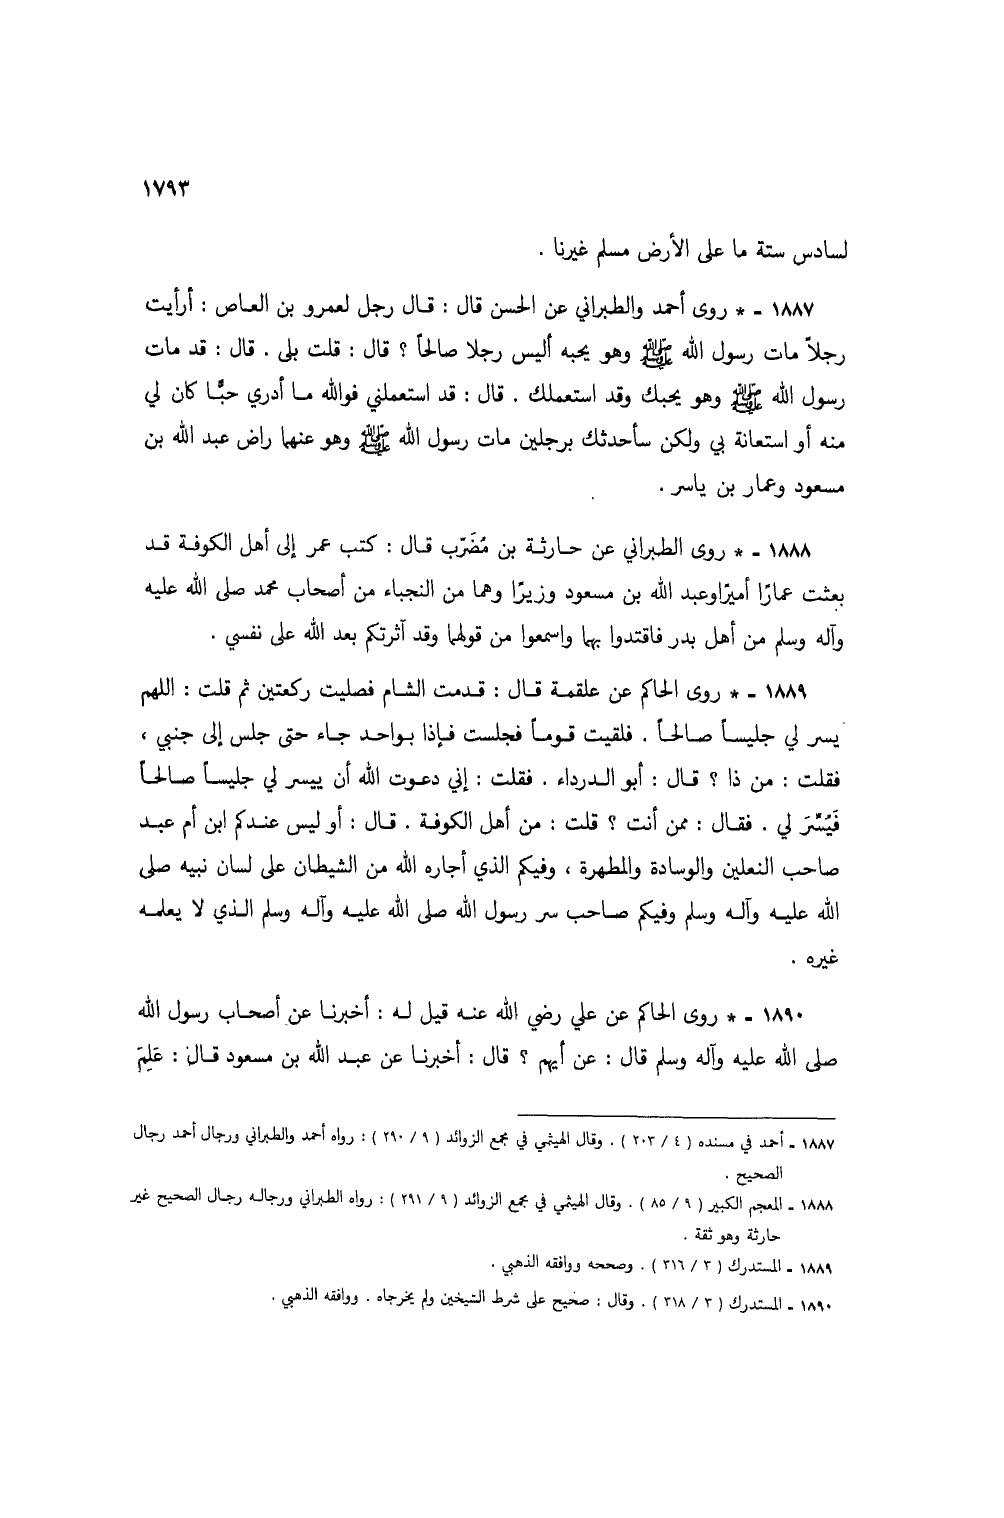 ١٧٩٣
لسادس ستة ما على الأرض مسلم غيرنا .
١٨٨٧ ـ * روى أحمد والطبراني عن الحسن قال : قـال رجل لعمرو بن العـاص : أرأيت
رجلاً مات رسول الله ﷺ وهو يحبه أليس رجلا صالحاً ؟ قال : قلت بلى . قال : قد مات
رسول الله ﷺ وهو يحبك وقد استعملك . قال : قد استعملني فوالله مـا أدري حبًّـا كان لي
منه أو استعانة بي ولكن سأحدثك برجلين مات رسول الله ﷺ وهو عنهما راض عبد الله بن
مسعود وعمار بن ياسر .
١٨٨٨ ـ * روى الطبراني عن حـارثـة بن مُضَرّب قـال : كتب عمر إلى أهل الكوفـة قـد
بعثت عمارًا أميرًاوعبد الله بن مسعود وزيرًا وهما من النجباء من أصحاب محمد صلى الله عليه
وآله وسلم من أهل بدر فاقتدوا بهما واسمعوا من قولهما وقد آثرتكم بعد الله على نفسي .
١٨٨٩ ـ * روى الحاكم عن علقمـة قـال : قـدمت الشـام فصليت ركعتين ثم قلت : اللهم
يسر لي جليسـاً صـالحـاً . فلقيت قـومـاً فجلست فـإذا بـواحـد جـاء حتى جلس إلى جنبي ،
فقلت : من ذا ؟ قـال : أبو الـدرداء . فقلت : إني دعـوت الله أن ييسر لي جليسـاً صـالحـاً
فَيُسِّرَ لي . فقـال : ممن أنت ؟ قلت : من أهل الكوفـة . قـال : أو ليس عنـدكم ابن أم عبـد
صاحب النعلين والوسادة والمطهرة ، وفيكم الذي أجاره الله من الشيطان على لسان نبيه صلى
الله عليـه وآلـه وسلم وفيكم صـاحب سر رسول الله صلى الله عليـه وآلـه وسلم الـذي لا يعلمـه
غيره .
١٨٩٠ ـ * روى الحاكم عن علي رضي الله عنـه قيل لـه : أخبرنـا عن أصحـاب رسول الله
صلى الله عليه وآله وسلم قال : عن أيهم ؟ قال : أخبرنـا عن عبـد الله بن مسعود قـال : عَلِمَ
١٨٨٧ ـ أحمد في مسنده ( ٤ / ٢٠٣ ) . وقال الهيثمي في مجمع الزوائد ( ٩ / ٢٩٠ ) : رواه أحمد والطبراني ورجال أحمد رجال
الصحيح .
١٨٨٨ ـ المعجم الكبير ( ٩ / ٨٥ ) . وقال الهيثمي في مجمع الزوائد ( ٩ / ٢٩١ ) : رواه الطبراني ورجالـه رجـال الصحيح غير
حارثة وهو ثقة .
١٨٨٩ ـ المستدرك ( ٣ / ٣١٦ ) . وصححه ووافقه الذهبي .
١٨٩٠ ـ المستدرك ( ٣ / ٣١٨ ) . وقال : صحيح على شرط الشيخين ولم يخرجاه . ووافقه الذهبي .